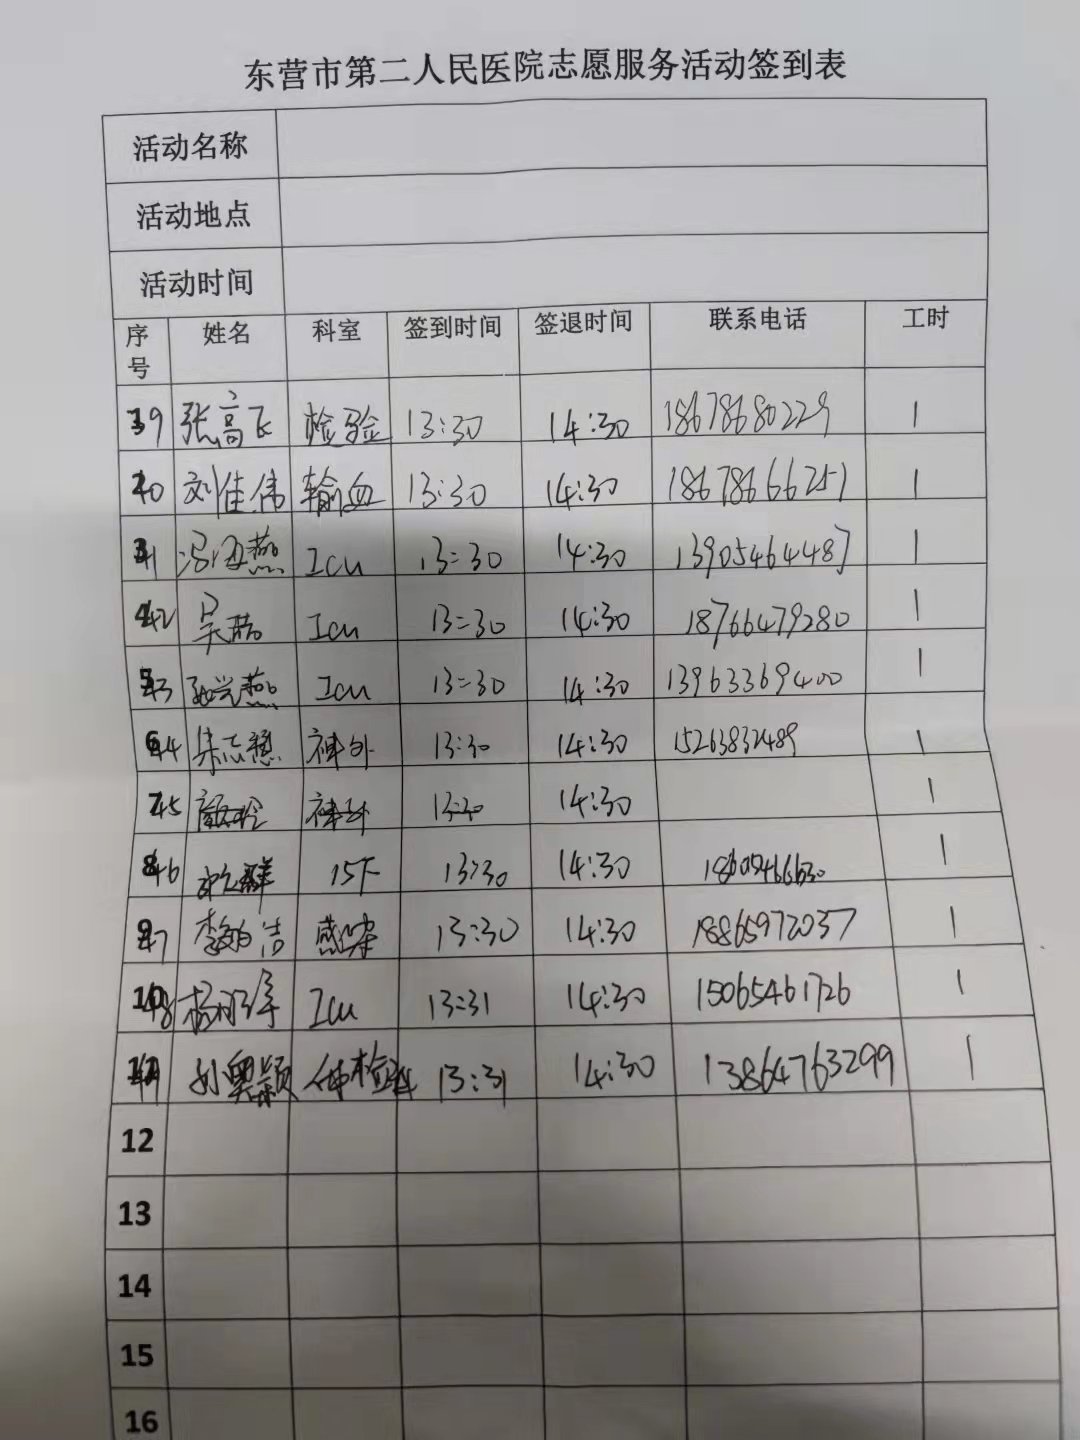 东营市第二人民医院志愿服务活动签到表
活动名称
活动地点
活动时间
序号 姓名 科室 签到时间 签退时间 联系电话 工时
39 张高飞 检验 13:30 14:30 18678680229 1
40 刘佳伟 输血 13:30 14:30 18678666251 1
41 冯海燕 Icu 13:30 14:30 13905464487 1
42 Icu 13:30 14:30 18766479280 1
43 孙兴燕 Icu 13:30 14:30 13963369400 1
44 朱志慧 神外 13:30 14:30 15263832489 1
45 神外 13:30 14:30 1
46 15F 13:30 14:30 1
47 李 洁 感染 13:30 14:30 18865972037 1
48 杨 Icu 13:31 14:30 15065461726 1
49 孙奥颖 体检 13:31 14:30 13864763299 1
12
13
14
15
16